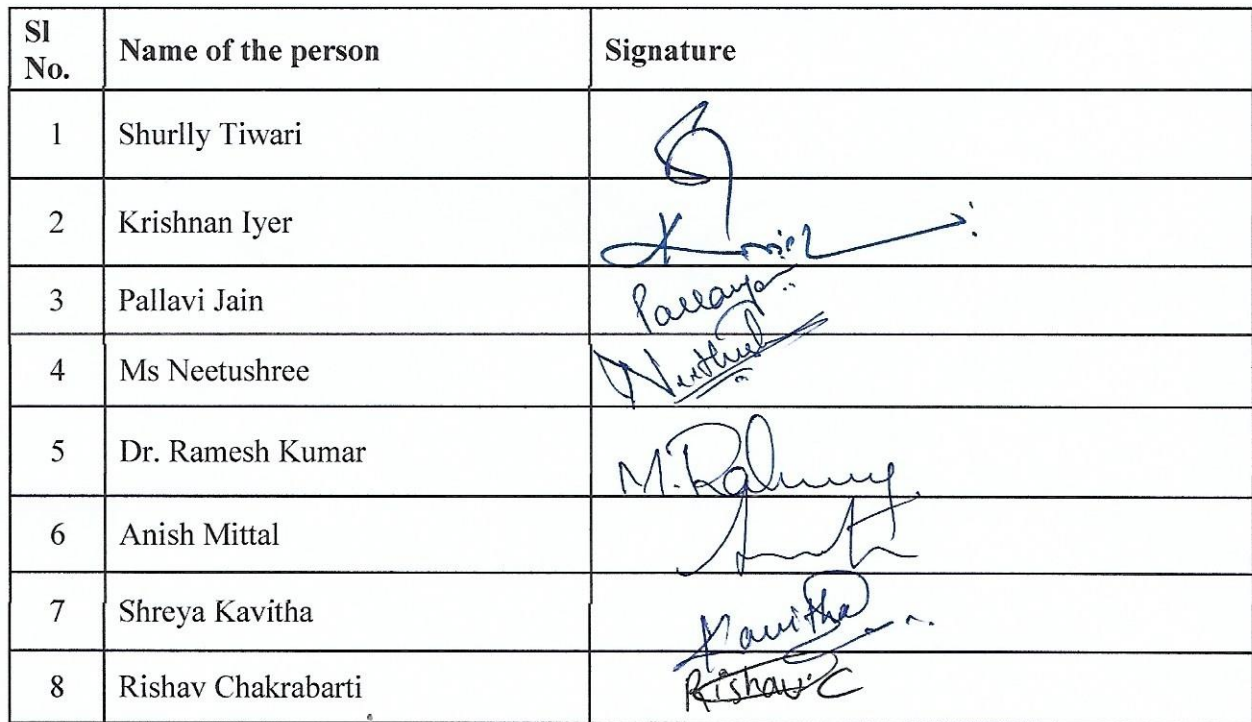 Sl No. Name of the person Signature
1 Shurlly Tiwari
2 Krishnan Iyer
3 Pallavi Jain
4 Ms Neetushree
5 Dr. Ramesh Kumar
6 Anish Mittal
7 Shreya Kavitha Kavitha
8 Rishav Chakrabarti Rishav C